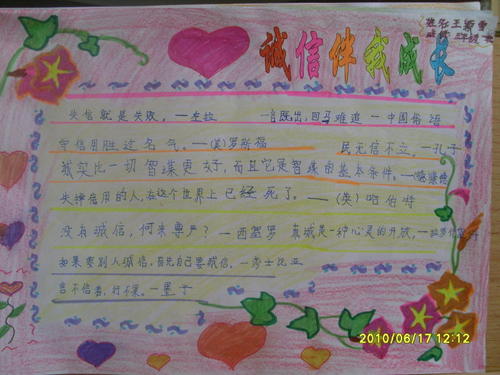 诚信伴我成长
失信就是失败。—左拉
言既出，四马难追 —中国俗语
守信用胜过名气。—(美)罗斯福
民无信不立。—孔子
诚实比一切智谋更好，而且它是智谋的基本条件。—康德
失掉信用的人，在这个世界上已经死了。—(英)哈伯特
没有诚信，何来尊严？—西塞罗
真诚是一种心灵的开放。
如果要别人诚信，首先自己要诚信。—莎士比亚
言不信者，行不果。—墨子
2010/06/17 12:12